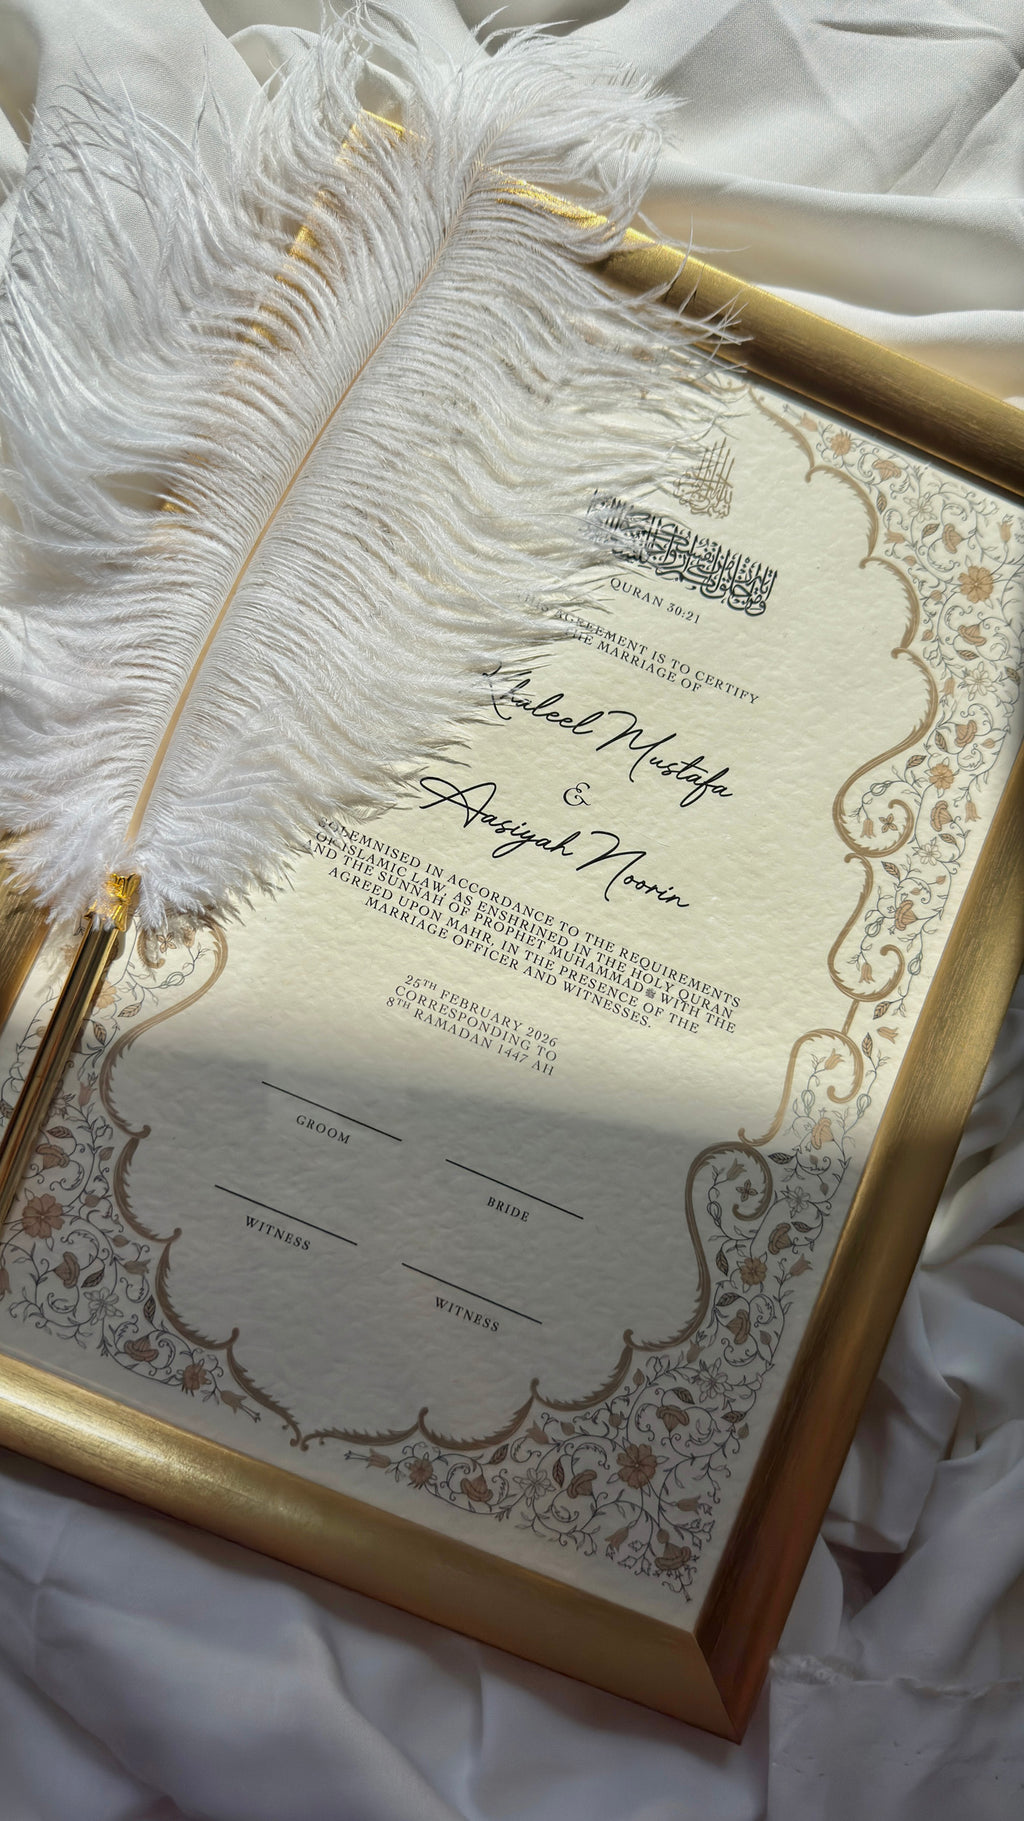 QURAN 30:21
THIS AGREEMENT IS TO CERTIFY
THE MARRIAGE OF
Khaleel Mustafa
&
Aasiyah Noorin
SOLEMNISED IN ACCORDANCE TO THE REQUIREMENTS
OF ISLAMIC LAW, AS ENSHRINED IN THE HOLY QURAN
AND THE SUNNAH OF PROPHET MUHAMMADﷺ WITH THE
AGREED UPON MAHR, IN THE PRESENCE OF THE
MARRIAGE OFFICER AND WITNESSES.
25TH FEBRUARY 2026
CORRESPONDING TO
8TH RAMADAN 1447 AH
GROOM
BRIDE
WITNESS
WITNESS